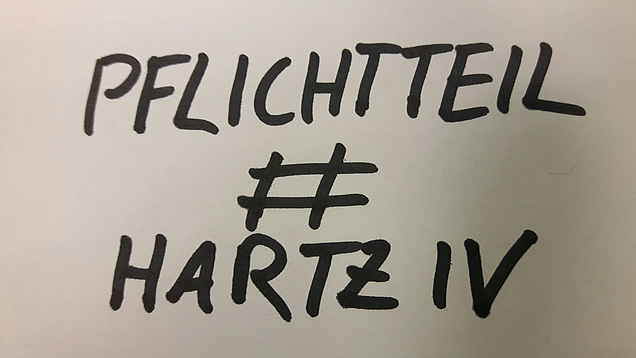 PFLICHTTEIL
#
HARTZ IV